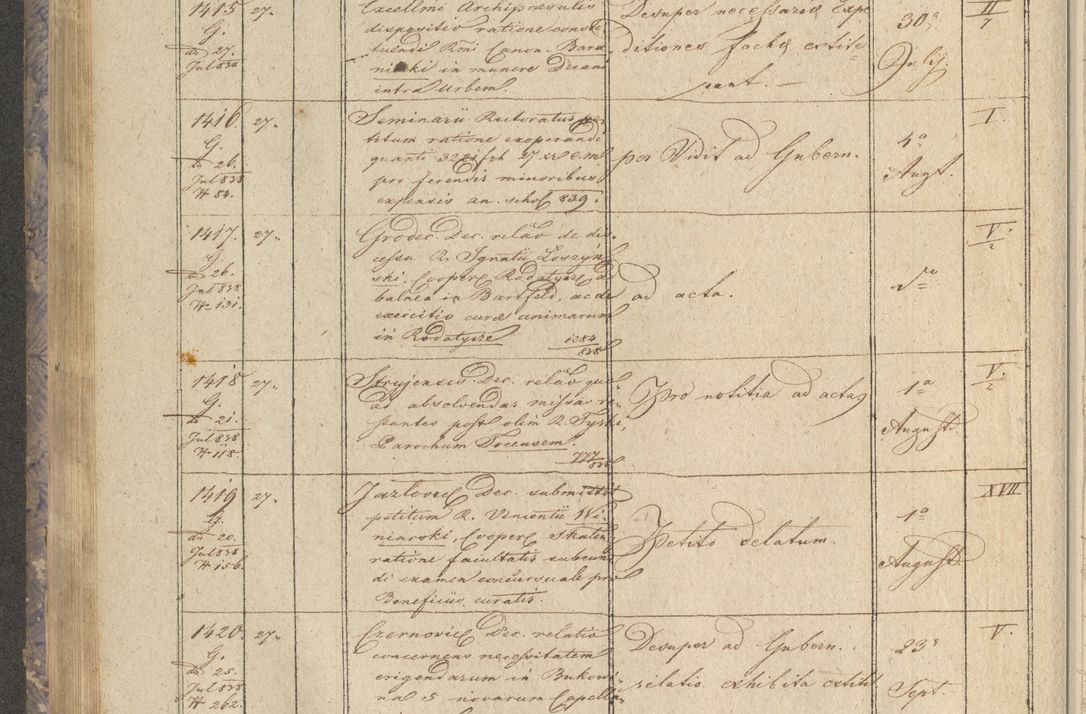 1415 27.
G.
do 27.
Jul 838
Excellmi Archipraesulis
dispositio ratione consti-
tuendi Rmi Canon. Bara-
niecki in munere Decani
intra Urbem.
Desuper necessariae Expe
ditiones factae extite
runt. —
30a
July.
II
7
1416. 27.
G.
do 26.
Jul 838
N 84.
Seminarii Rectoratus pe-
titum ratione exoperandi
quanti fr 27 xr C.M.
pro ferendis minoribus
expensis an. schol 839.
per Vidit ad Gubern.
4a
Augt.
I.
1417. 27.
G.
do 26.
Jul 838
N 131.
Grodec. Dec. relat de dis-
cessu R. Ignatii Łoszyń-
ski, Cooper Rodatycze a
balnea in Bartfeld, ac de
exercitio curae animarum
in Rodatycze 1284
838
ad acta.
V.
2
1418 27.
G.
do 21.
Jul 838
N 118.
Stryjensis Dec. relat quo
ad absolvendas missas re-
stantes post olim R. Tyski,
Parochum Socensem.
777
838
Pro notitia ad acta
1a
Augusti.
V.
2
1419 27.
G.
do 20.
Jul 838
N 156.
Jazlovec Dec. submittit
petitum R. Vincentii Wi-
niarski, Cooper Skalen
ratione facultatis subeun-
di examen concursuale pro
Beneficiis curatis.
Petito delatum.
1a
Augusti.
XVII
1420. 27.
G.
do 25.
Jul 838
N 262.
Czernovic Dec. relatio
concernens necessitatem
erigendarum in Bukowi-
na 5 novarum Capella-
Desuper ad Gubern.
relatio exhibita extitit
23a
Sept.
V.